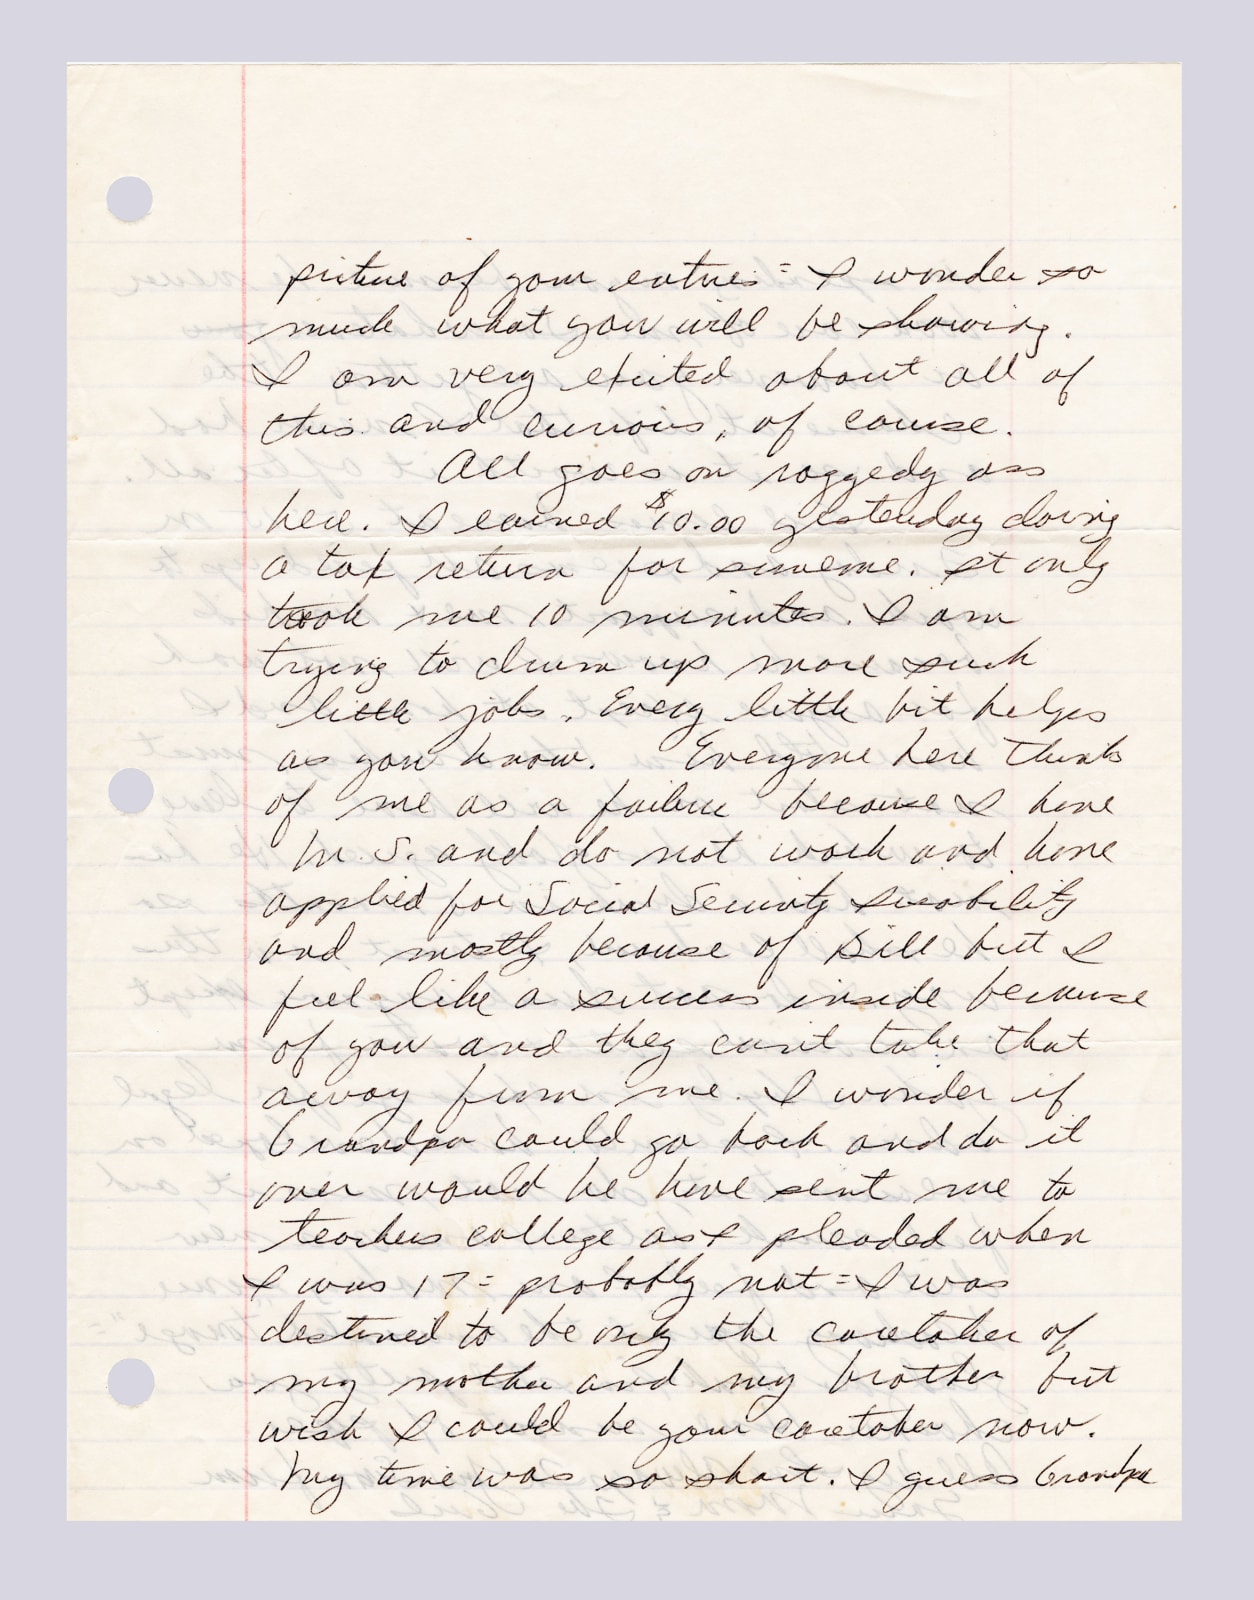 picture of your entries = I wonder so
much what you will be showing.
I am very exited about all of
this and curious, of course.
All goes on raggedy ass
here. I earned $10.00 yesterday doing
a tax return for someone. It only
took me 10 minutes. I am
trying to drum up more such
little jobs. Every little bit helps
as you know. Everyone here thinks
of me as a failure because I have
M.S. and do not work and have
applied for Social Security disability
and mostly because of Bill but I
feel like a success inside because
of you and they can't take that
away from me. I wonder if
Grandpa could go back and do it
over would he have sent me to
teachers college as I pleaded when
I was 17 = probably not = I was
destined to be only the caretaker of
my mother and my brother but
wish I could be your caretaker now.
My time was so short. I guess Grandpa